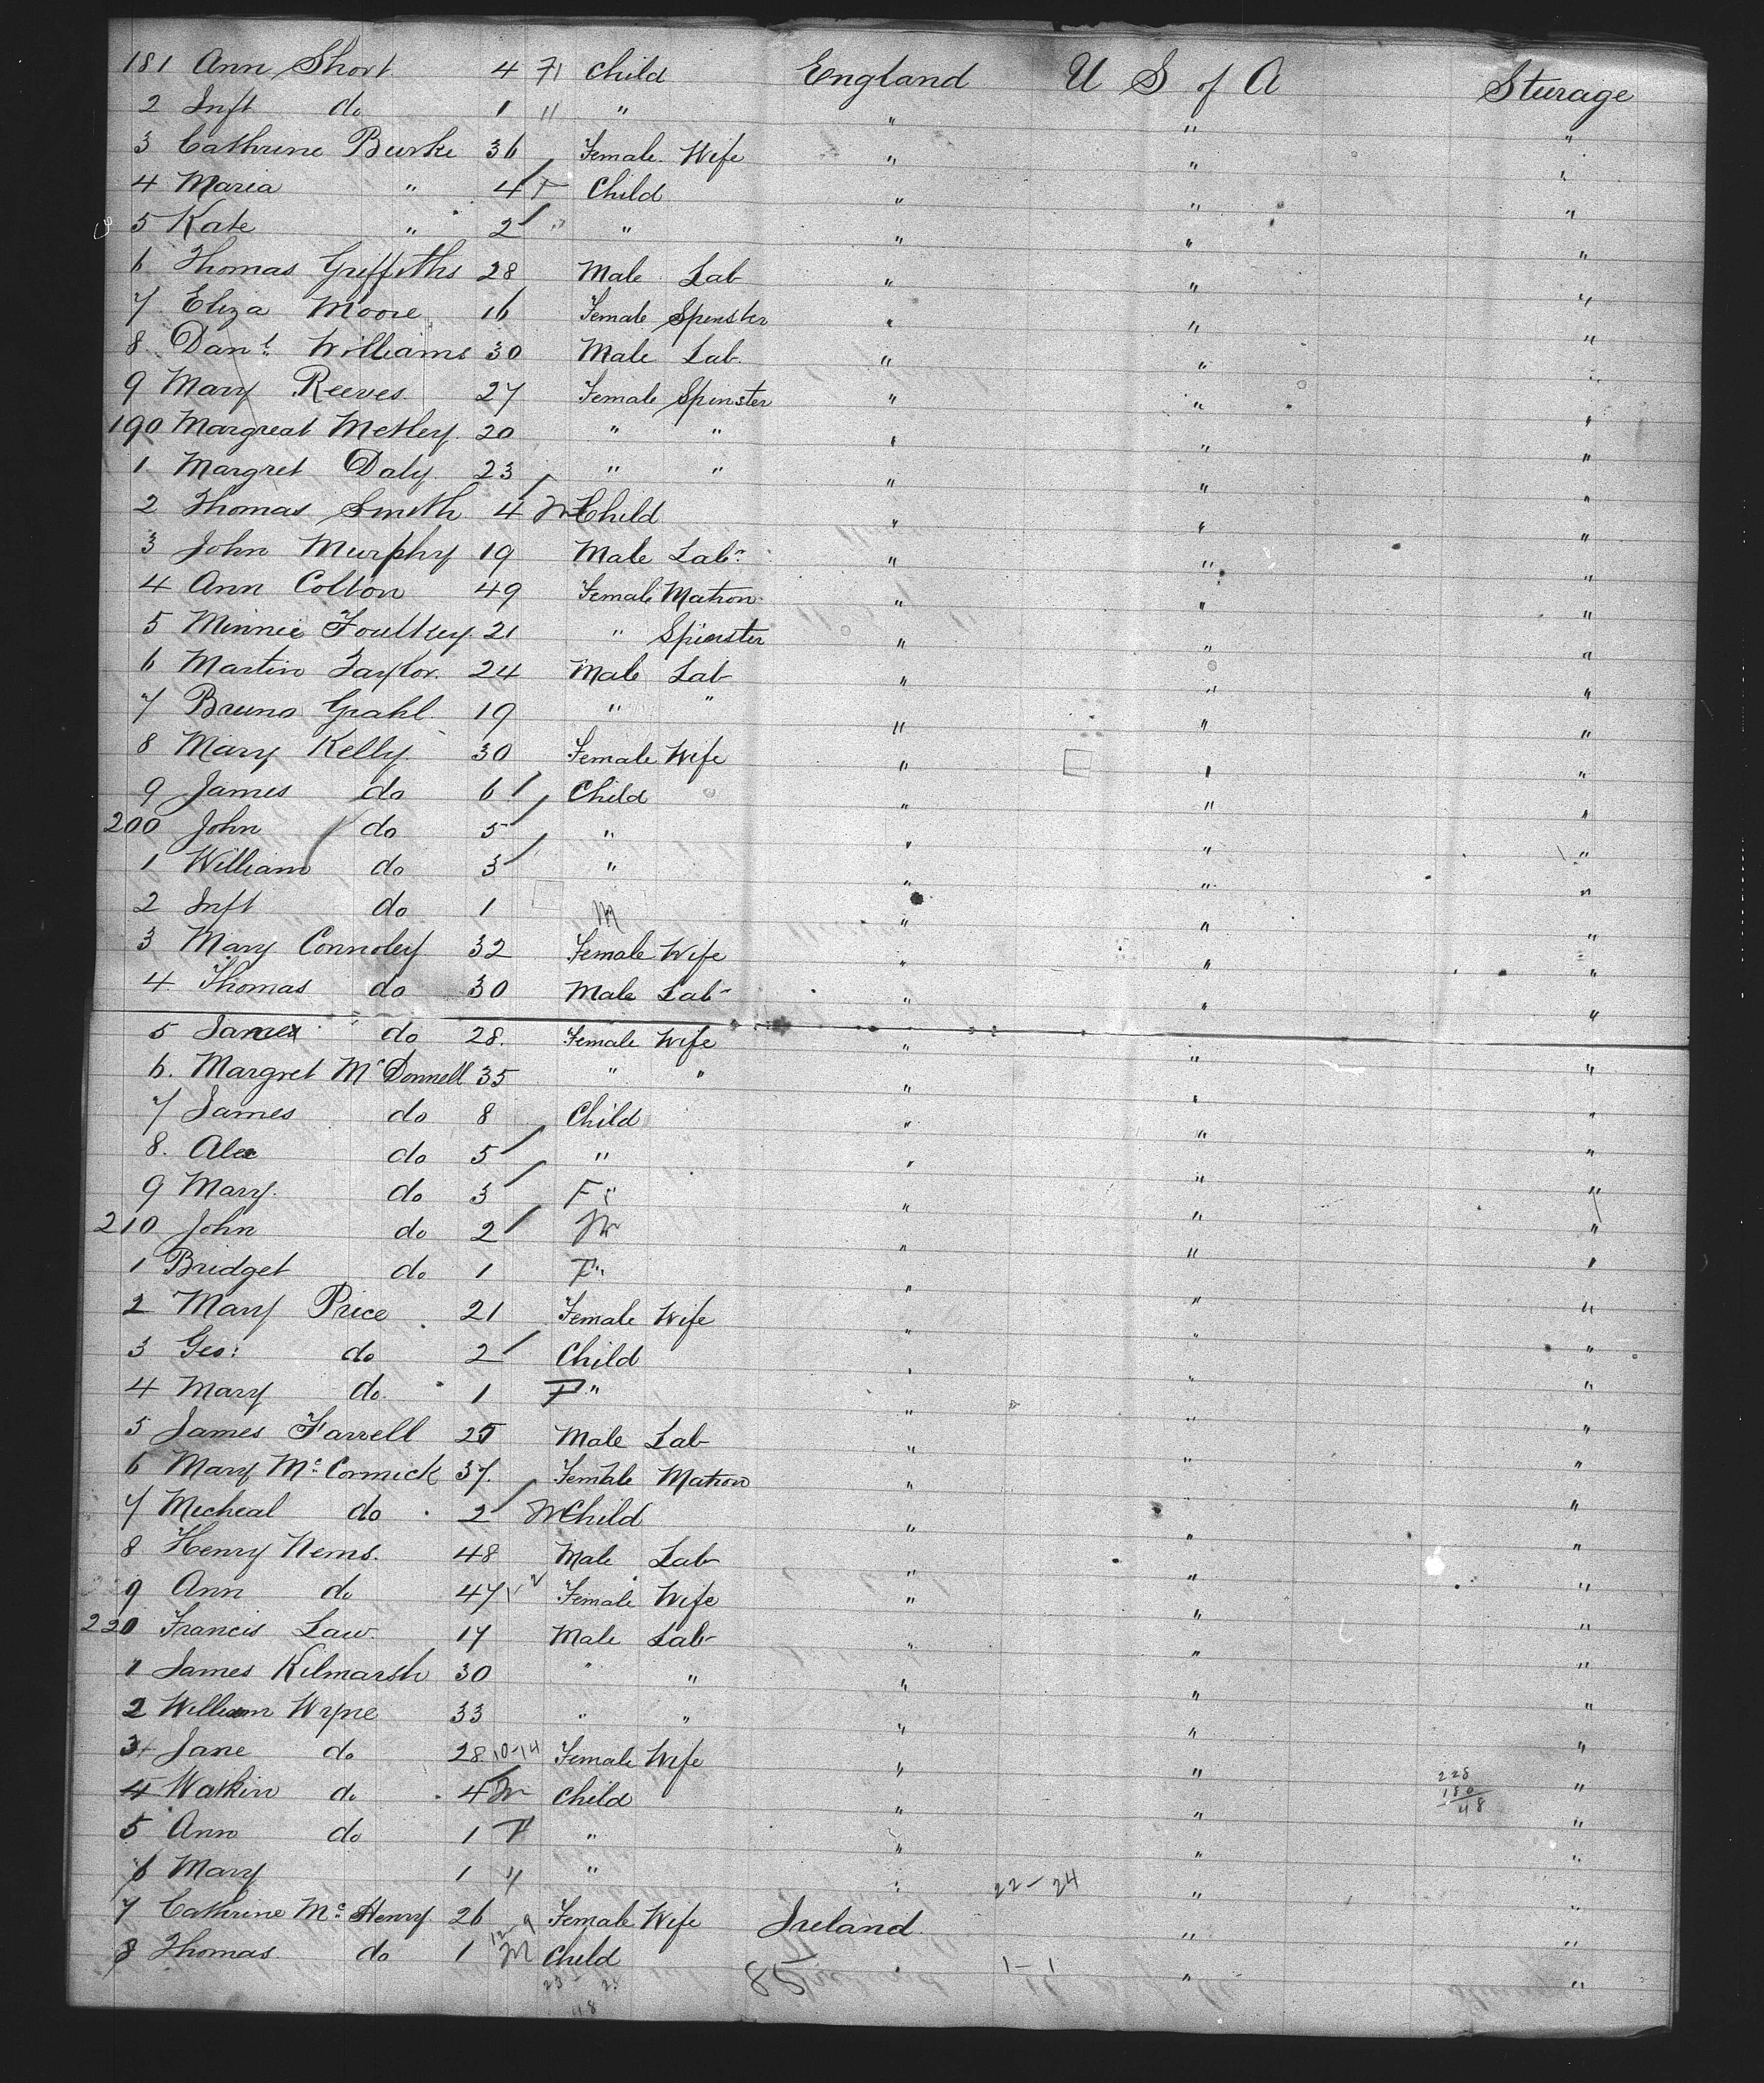 181 Ann Short 4 F Child England U S of A Sturage
2 Inft do 1 " " " " "
3 Cathrine Burke 36 Female Wife " " "
4 Maria " 4 F Child " " "
5 Kate " 2 " " " " "
6 Thomas Griffiths 28 Male Lab " " "
7 Eliza Moore 16 Female Spinster " " "
8 Danl. Williams 30 Male Lab. " " "
9 Mary Reeves. 27 Female Spinster " " "
190 Margreat 20 " " " " "
1 Margret Daly. 23 " " " " "
2 Thomas Smith 4 M Child " " "
3 John Murphy 19 Male Labr. " " "
4 Ann Colton 49 Female Matron " " "
5 Minnie 21 " Spinster " " "
6 Martin Taylor. 24 Male Lab " " "
7 Bruno Grahl. 19 " " " " "
8 Mary Kelly. 30 Female Wife " " "
9 James do 6 Child " " "
200 John do 5 " " " "
1 William do 3 " " " "
2 Inft do 1 M " " "
3 Mary Connoley 32 Female Wife " " "
4 Thomas do 30 Male Lab " " "
5 do 28. Female Wife " " "
6. Margret McDonnell 35 " " " " "
7 James do 8 Child " " "
8. Alex do 5 " " " "
9 Mary. do 3 F " " " "
210 John do 2 M " " "
1 Bridget do 1 F " " " "
2 Mary Price 21 Female Wife " " "
3 Geo: do 2 Child " " "
4 Mary do. 1 F " " " "
5 James Farrell 25 Male Lab " " "
6 Mary Mc. Cormick 37. Female Matron " " "
7 Micheal do 2 M Child " " "
8 Henry Nems. 48 Male Lab " " "
9 Ann do 47 Female Wife " " "
220 Francis Law. 17 Male Lab " " "
1 James Kilmarsh 30 " " " " "
2 William Wyne 33 " " " " "
3 Jane do 28. 10-14 Female Wife " " "
4 Watkin do 4 M Child " " 228 180 48 "
5 Ann do 1 F " " " "
6 Mary 1 " " " 22-24 " "
7 Cathrine Mc. Henry 26 Female Wife Ireland. " "
8 Thomas. do 1 M Child " 1-1 " "
85